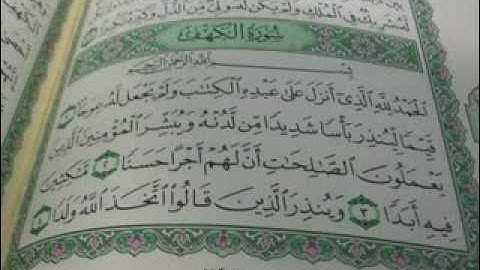 شَرِيكٌ فِى ٱلْمُلْكِ وَلَمْ يَكُن لَّهُۥ وَلِىٌّ مِّنَ ٱلذُّلِّ وَكَبِّرْهُ
سُورَةُ الكَهْفِ
بِسْمِ ٱللَّهِ ٱلرَّحْمَٰنِ ٱلرَّحِيمِ
ٱلْحَمْدُ لِلَّهِ ٱلَّذِىٓ أَنزَلَ عَلَىٰ عَبْدِهِ ٱلْكِتَٰبَ وَلَمْ يَجْعَل لَّهُۥ عِوَجَا ۜ ١
قَيِّمًا لِّيُنذِرَ بَأْسًا شَدِيدًا مِّن لَّدُنْهُ وَيُبَشِّرَ ٱلْمُؤْمِنِينَ ٱلَّذِينَ
يَعْمَلُونَ ٱلصَّٰلِحَٰتِ أَنَّ لَهُمْ أَجْرًا حَسَنًا ٢ مَّٰكِثِينَ
فِيهِ أَبَدًا ٣ وَيُنذِرَ ٱلَّذِينَ قَالُوا۟ ٱتَّخَذَ ٱللَّهُ وَلَدًا ٤